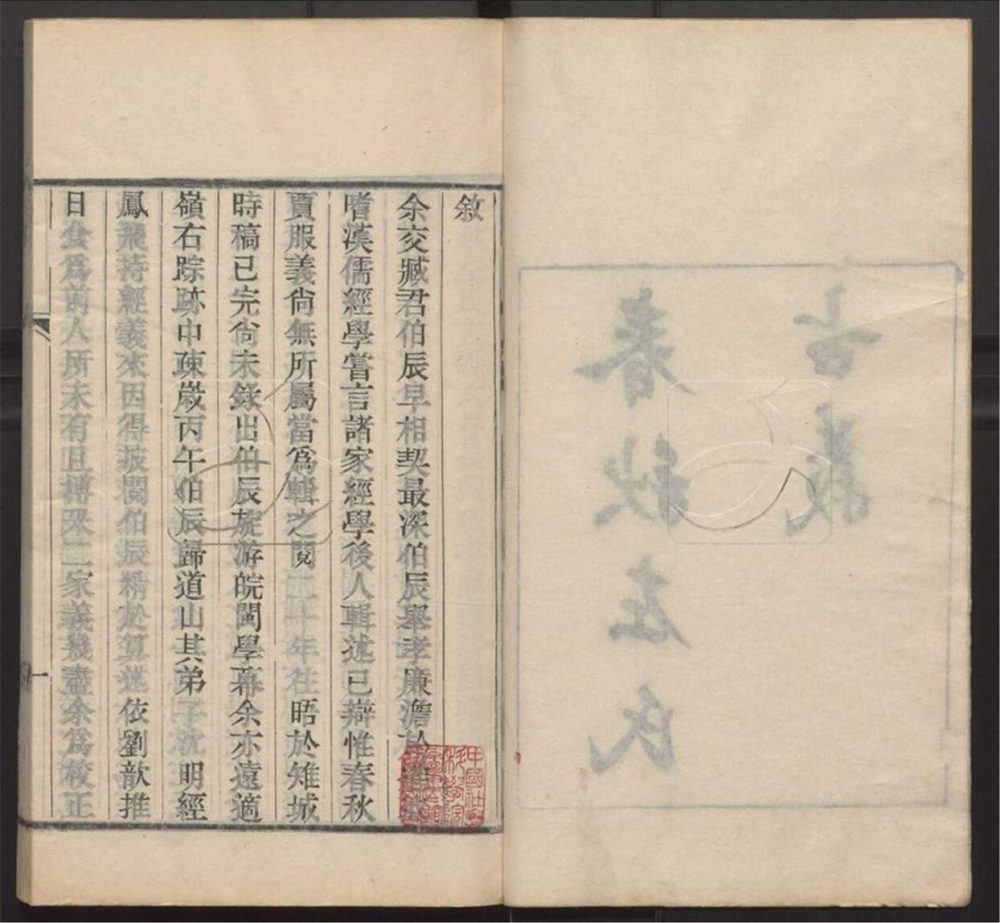 春秋左氏
古義
敘
余交臧君伯辰早相契最深伯辰舉孝廉澹於
嗜漢儒經學嘗言諸家經學後人輯述已辯惟春秋
賈服義尙無所屬當爲輯之閱二十年往晤於雉城
時稿已完尙未錄出伯辰旋游皖閩學幕余亦遠適
嶺右踪跡中疎歲丙午伯辰歸道山其弟子沈明經
鳳飛持經義來因得披閱伯辰精於算述依劉歆推
日食爲前人所未有且搏采二家義幾盡余爲校正
一